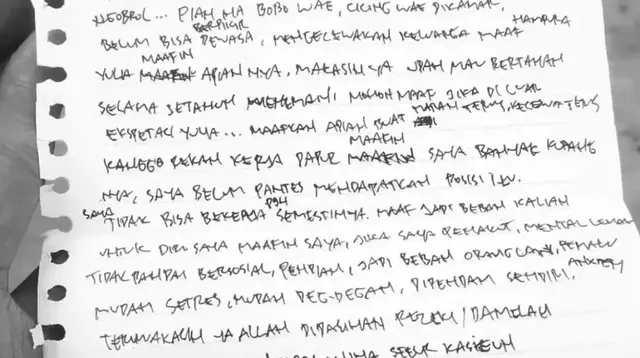 NGOBROL... PIAN MA BOBO WAE, CICING WAE DIKAMAR,
BERPIKIR HAMPURA
BELUM BISA DEWASA, MENGECEWAKAN KELUARGA MAAF
MAAFIN
YULIA APIAN NYA, MAKASIH YA UDAH MAU BERTAHAN
SELAMA SETAHUN MENEMANI, MOHON MAAF JIKA DI LUAR
TERUS, KECEWA TERUS
EKSPETASI YULIA... MAAFKAN APIAN BUAT
MAAFIN
KANGGO REKAN KERJA DAPUR SAYA BANYAK KURANG
NYA, SAYA BELUM PANTES MENDAPATKAN POSISI ITU.
SAYA TIDAK BISA BEKERJA YANG SEMESTINYA. MAAF JADI BEBAN KALIAN
UNTUK DIRI SAYA MAAFIN SAYA, JIKA SAYA PENAKUT, MENTAL LEMAH
TIDAK PANDAI BERSOSIAL, PENDIAM, JADI BEBAN ORANG LAIN, PEMALU
ANXIETY
MUDAH SETRES, MUDAH DEG-DEGAN, DIPENDAM SENDIRI,
TERIMAKASIH YA ALLAH DIPASIHAN REZEKI/DAMELAN